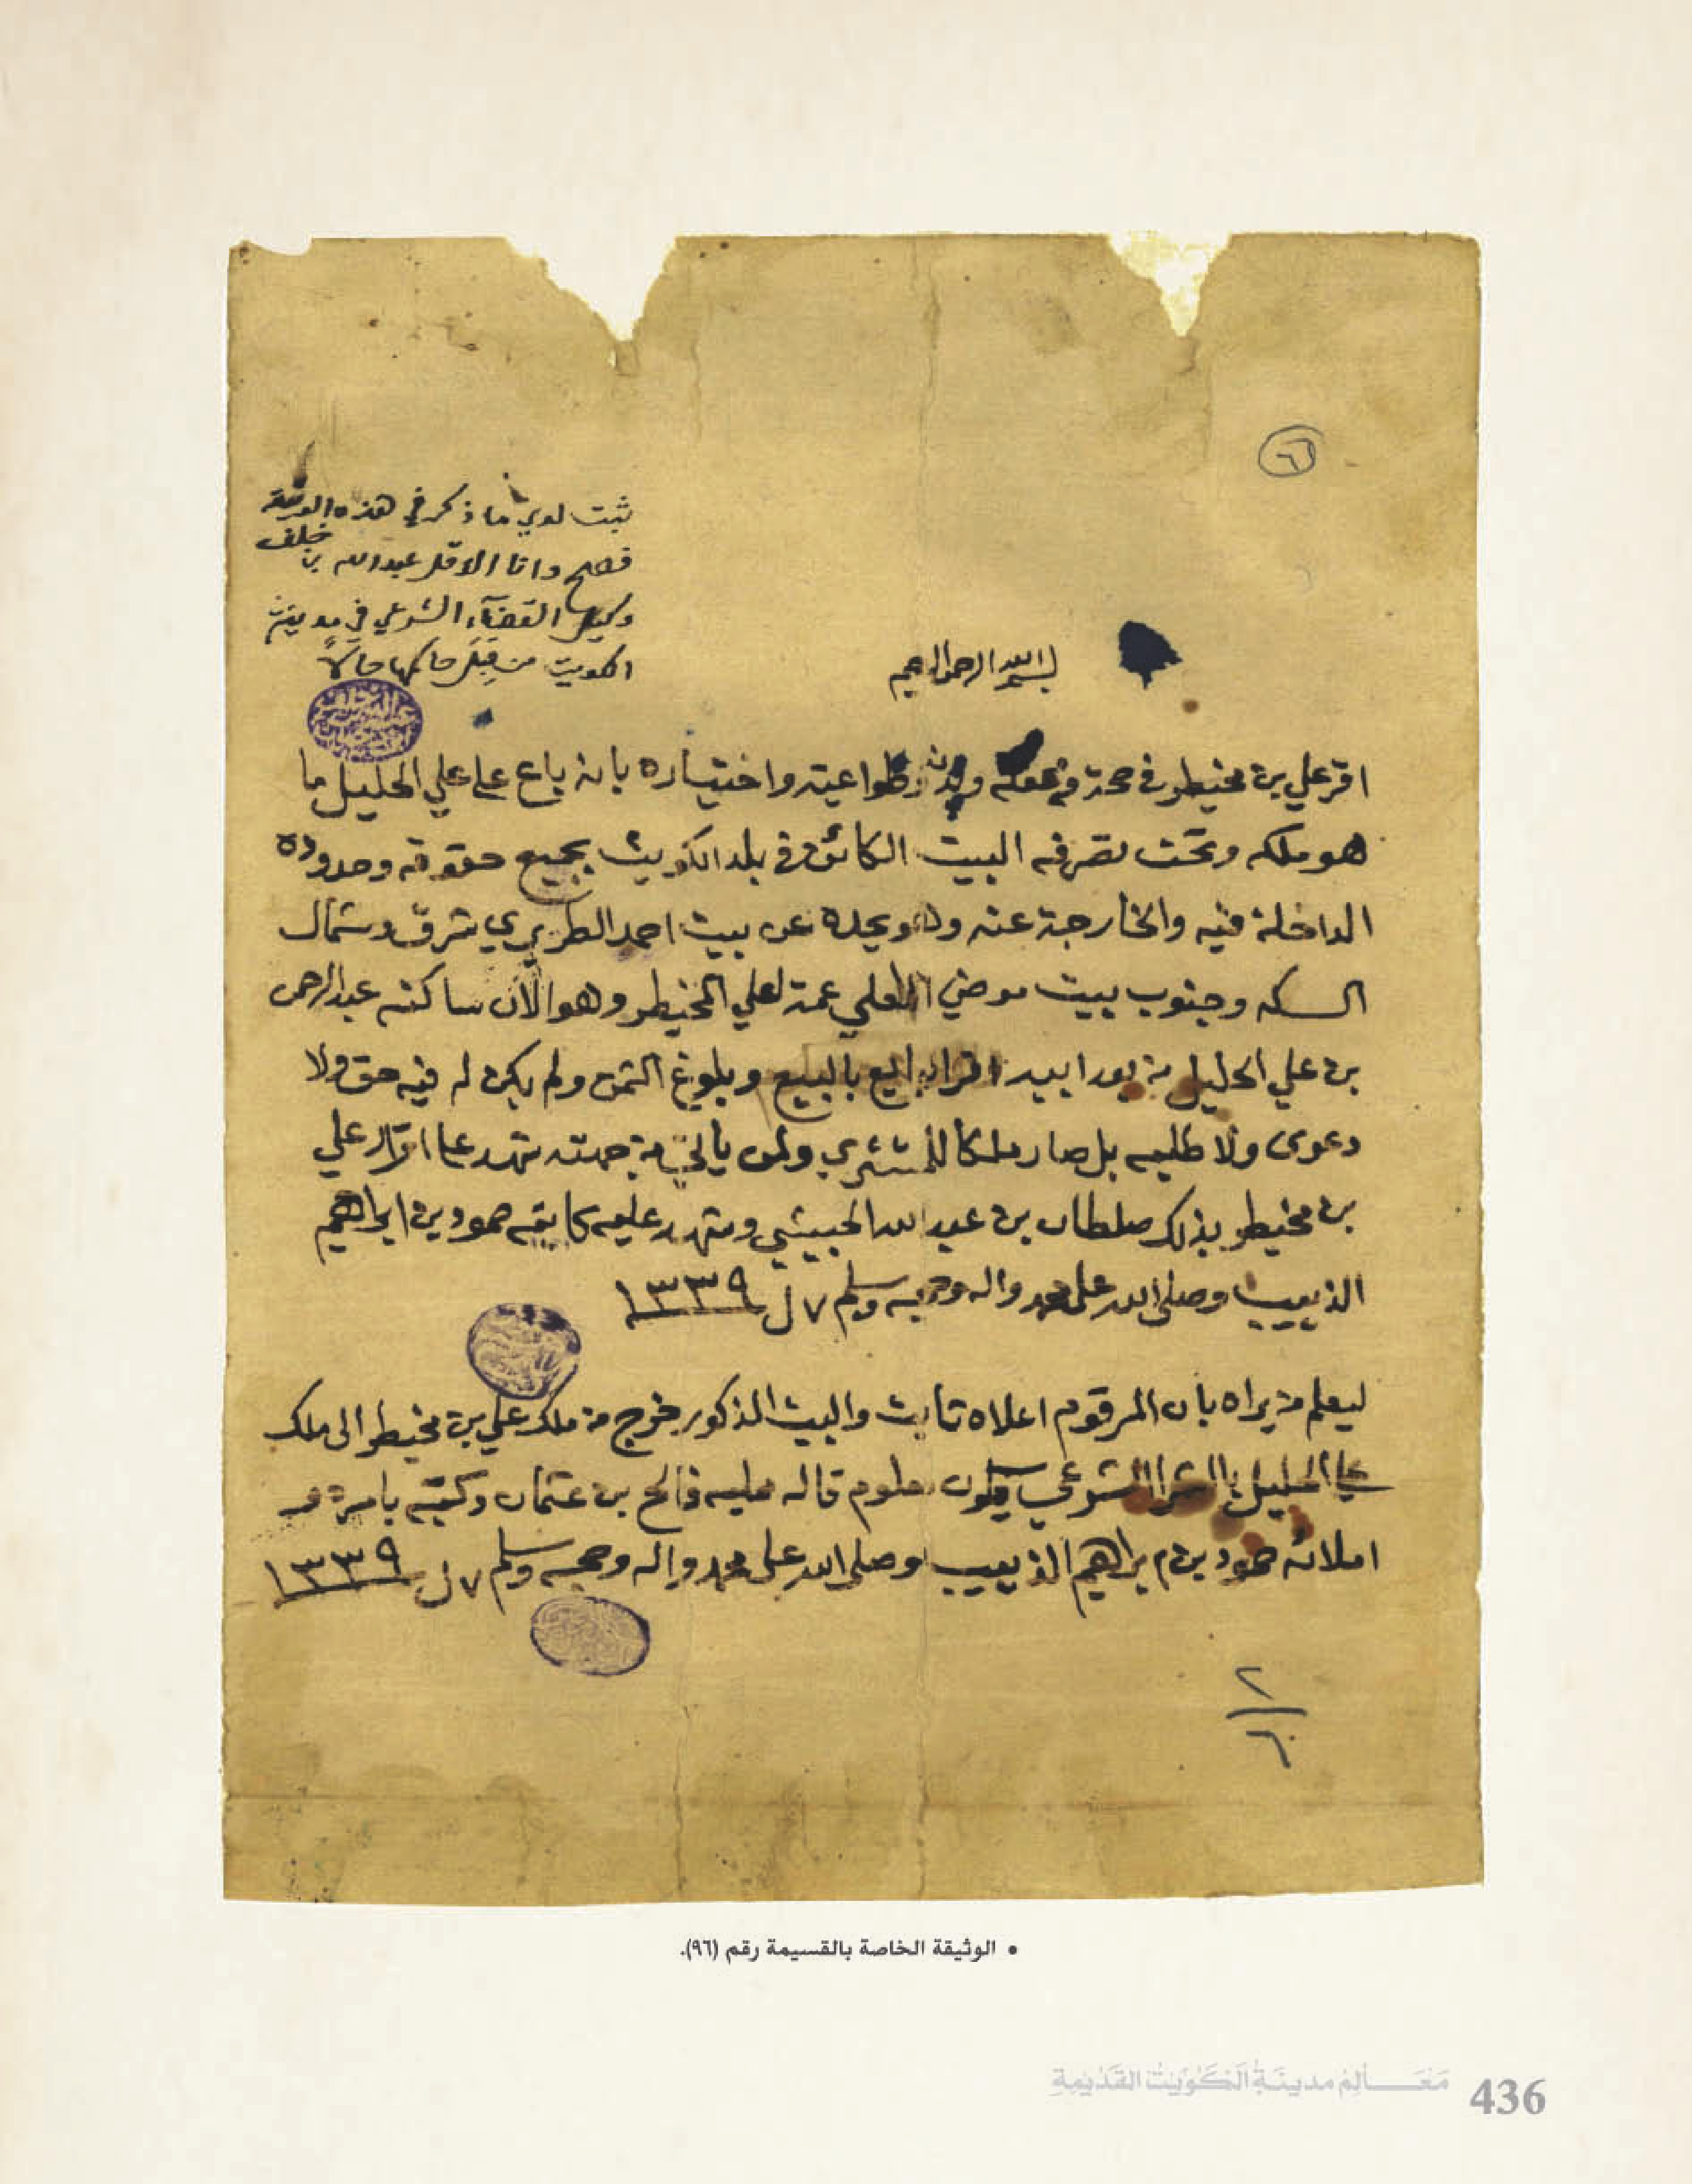 ٦٦
ثبت لدي ما ذكر في هذه الورقة
فصح وانا الاقل عبدالله بن خلف
وكيل القضآء الشرعي في مدينة
الكويت من قِبَل حاكمها حالاً
بسم الله الرحمن الرحيم
اقر علي بن مخيطر في صحة من عقله وبدنه وطواعيته واختياره بانه باع على علي الحليل ما
هو ملكه وتحت تصرفه البيت الكائن في بلد الكويت بجميع حقوقه وحدوده
الداخلة فيه والخارجة عنه ويحده عن بيت احمد الطريري شرق وشمال
السكه وجنوب بيت موضي العلي عمة لعلي المخيطر وهو الان ساكنه عبدالرحمن
بن علي الحليل اقرار البايع بالبيع وبلوغ الثمن ولم يكن له فيه حق ولا
دعوى ولا طليبه بل صار ملكا للمشتري ولمن ياتي من جهته شهد على اقرار علي
بن مخيطر بذلك صلطان بن عبدالله الحبيشي وشهد عليه كاتبه حمود بن ابراهيم
الذييب وصلى الله على محمد واله وصحبه وسلم ٧ ل ١٣٣٩
ليعلم من يراه بان المرقوم اعلاه ثابت والبيت المذكور خرج من ملك علي بن مخيطر الى ملك
علي الحليل بالشرا الشرعي معلوم قاله مليه فالح بن عثمان وكتبه بامره من
املائه حمود بن ابراهيم الذييب وصلى الله على محمد واله وصحبه وسلم ٧ ل ١٣٣٩
٢
٦
• الوثيقة الخاصة بالقسيمة رقم (٩٦).
مَعَـالِمُ مدينَةِ الكوَيت القَديمَةِ 436